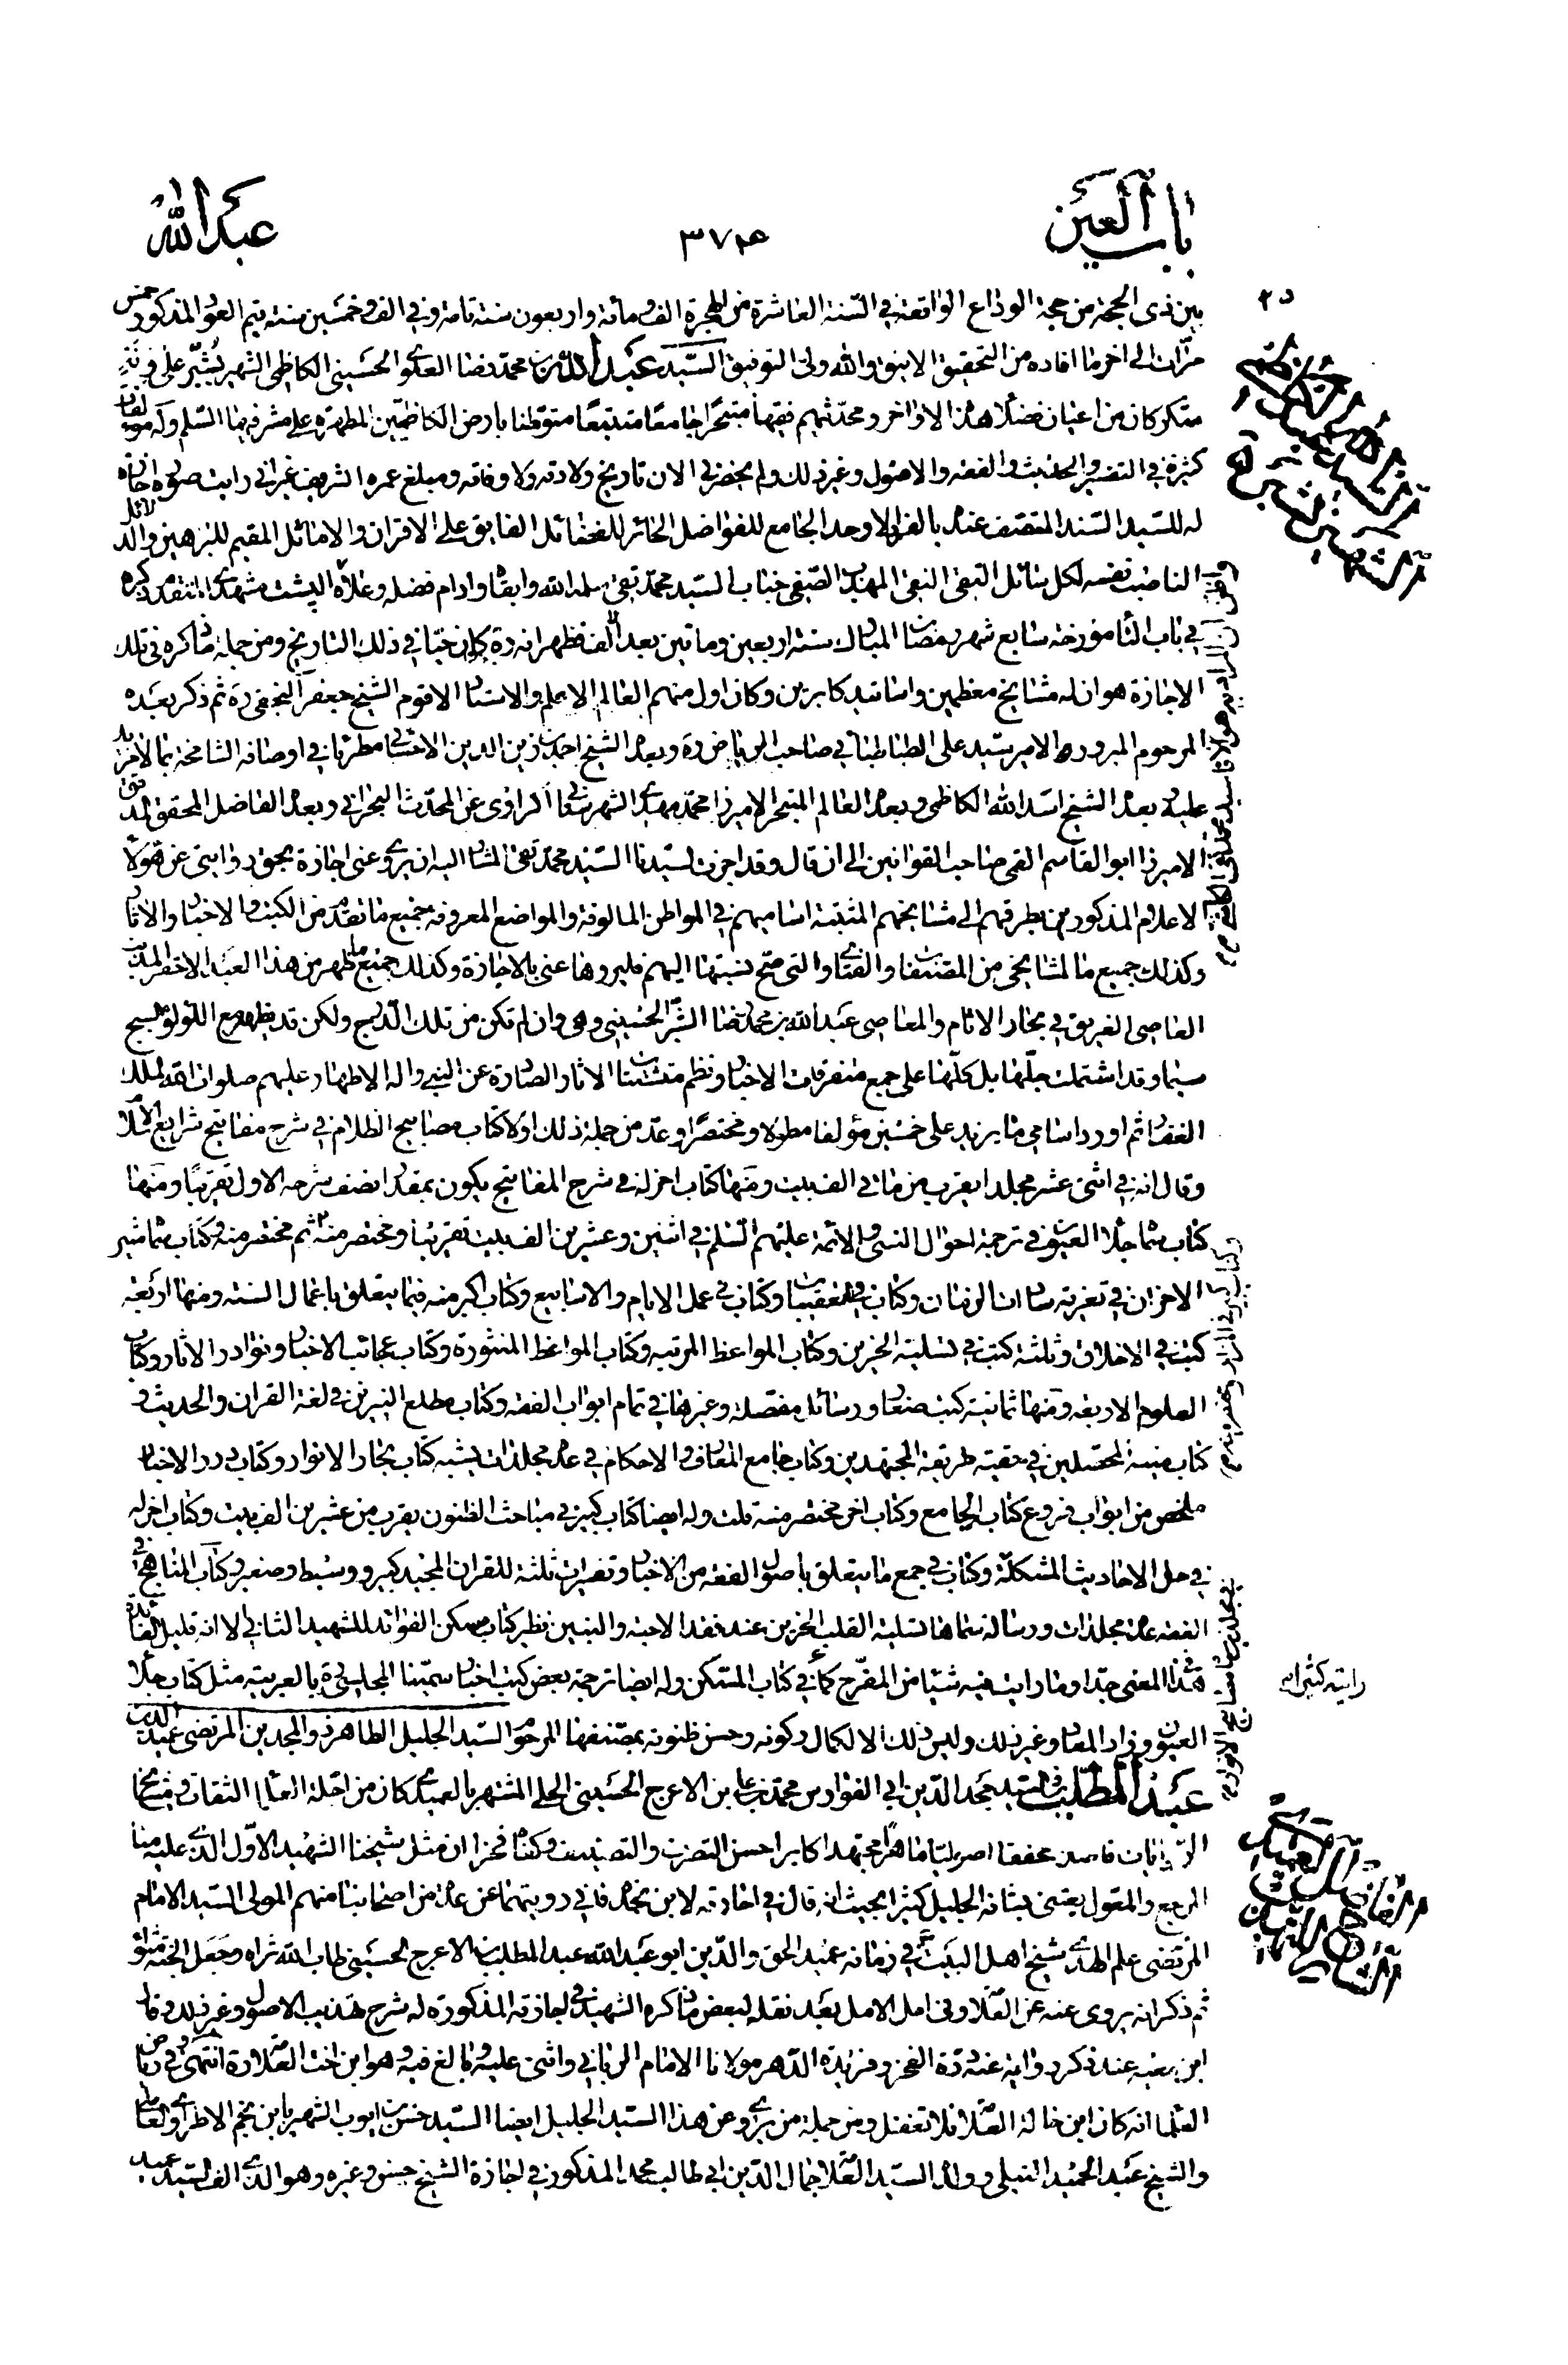 باب العين
٣٧٤
عبد الله
بين ذى الحجة من حجة الوداع الواقعة في السنة العاشرة من الهجرة الف ومائة واربعون سنة تامة وفي الف وخمسين سنة يتم العود المذكور خمس
مرات الى اخر ما افاده من التحقيق الانيق والله ولى التوفيق السيد عبد الله بن محمد رضا العلوى الحسينى الكاظمى الشهير بشبر على وزن
سكر كان من اعيان فضلاء هذا الاواخر ومحدثيهم فقيها متبحرا جامعا متتبعا متوطنا بارض الكاظمين المطهرة على مشرفيها السلم وله مؤلفات
كثيرة في التفسير والحديث والفقه والاصول وغير ذلك ولم يحضرني الان تاريخ ولادته ولا وفاته ومبلغ عمره الشريف غير اني رايت صورة اجازة
له للسيد السند المتصف عنده بالفرد الاوحد الجامع للفواضل الحائز للفضائل الفايق على الاقران والاماثل المقيم للبراهين والدلائل
الناصب نفسه لكل سائل التقى النقى المهذب الصفى جناب السيد محمد تقى سلمه الله وابقاه وادام فضله وعلاه المتقدم ذكره
في باب التا مؤرخة سابع شهر رمضان المبارك سنة اربعين وماتين بعد الف فظهر انه ره كان حيا في ذلك التاريخ ومن جملة ما ذكره في تلك
الاجازة هو ان له مشايخ معظمين واساتيد كابرين وكان اول منهم العالم الاعلم والاستاد الاقوم الشيخ جعفر النجفى ره ثم ذكر بعده
المرحوم المبرور الامير سيد على الطباطبائي صاحب الرياض ره وبعده الشيخ احمد بن زين الدين الاحسائى مطريا في اوصافه الشامخة بما لا مزيد
عليه بعده الشيخ اسد الله الكاظمى وبعده العالم المتبحر الاميرزا محمد مهدى الشهرستانى الراوى عن المحدث البحراني وبعده الفاضل المحقق المدقق
الاميرزا ابو القاسم القمى صاحب القوانين الى ان قال وقد اجزت لسيدنا السيد محمد تقى المشار اليه ان يروى عنى اجازة بحق روايتى عن هؤلاء
الاعلام المذكورين بطرقهم الى مشايخهم المثبتة اساميهم في المواطن المالوفة والمواضع المعروفة جميع ما تقدم من الكتب والاخبار والاثار
وكذلك جميع ما لمشايخى من المصنفات والفتاوى التى صح نسبتها اليهم فليروها عنى بالاجازة وكذلك جميع ما ظهر من هذا العبد الاحقر المذنب
العاصى الغريق في بحار الاثام والمعاصى عبد الله بن محمد رضا الشبر الحسينى وهى وان لم تكن من تلك الدرج ولكن قد ينظم مع اللؤلؤ السبج
سيما وقد اشتملت جلها بل كلها على جمع متفرقات الاخبار ونظم متشتتات الاثار الصادرة عن النبى واله الاطهار عليهم صلوات الله الملك
الغفار ثم اورد اسامى ما يزيد على خمسين مؤلفا مطولا ومختصرا وعد من جملة ذلك اولا كتاب مصابيح الظلام في شرح مفاتيح شرايع الاسلام
وقال انه في اثنى عشر مجلدا يقرب من مائى الف بيت ومنها كتاب اخر له في شرح المفاتيح يكون بمقدار نصف شرحه الاول تقريبا ومنها
كتاب سماه جلاء العيون في ترجمة احوال النبى والائمة عليهم السلم في اثنين وعشرين الف بيت تقريبا ومختصر منه ثم مختصر منه وكتاب سماه مثير
الاحزان في تعزية سادات الزمان وكتاب في التعقيبات وكتاب في عمل الايام والاسابيع وكتاب اكبر منه فيما يتعلق باعمال السنة ومنها اربعة
كتب في الاخلاق وثلثة كتب في تسلية الحزين وكتاب المواعظ المرتبه وكتاب المواعظ المنثورة وكتاب عجائب الاخبار ونوادر الاثار وكتاب
العلوم الاربعه ومنها ثمانية كتب صغار ورسائل مفصلة وغيرها في تمام ابواب الفقه وكتاب مطلع النيرين في لغة القران والحديث و
كتاب منية المحصلين في حقية طريقة المجتهدين وكتاب جامع المعارف والاحكام في عدة مجلدات يشبه كتاب بحار الانوار وكتاب درر الاخبار
ملخص من ابواب فروع كتاب الجامع وكتاب اخر مختصر منه قلت وله ايضا كتاب كبير في مباحث الظنون يقرب من عشرين الف بيت وكتاب اخر له
في حل الاحاديث المشكلة وكتاب في جمع ما يتعلق باصول الفقه من الاخبار وتفسيرات ثلثة للقران المجيد كبير ووسيط وصغير وكتاب المناهج في
الفقه عدة مجلدات ورسالة سماها تسلية القلب الحزين عند فقد الاحبة والبنين نظير كتاب مسكن الفوائد للشهيد الثاني الا انه قليل الفائدة
في هذا المعنى جدا وما رايت فيه شيئا من المفرح كما في كتاب المسكن وله ايضا ترجمة بعض كتب اخبار سمينا المجلسى ره بالعربية مثل كتاب جلاء
العيون وزاد المعاد وغير ذلك وليس ذلك الا لكمال ركونه وحسن ظنونه بمصنفها المرحوم السيد الجليل الطاهر ذو المجدين المرتضى عميد الدين
عبد المطلب بن السيد مجد الدين ابى الفوارس محمد بن على بن الاعرج الحسينى الحلى المشتهر بالعميدى كان من اجلة العلماء الثقات ومشايخ
الروايات فاضلا محققا اصوليا ماهرا مجتهدا كابرا حسن التصرف والتصنيف وكفاه فخرا ان مثل شيخنا الشهيد الاول الذى عليه منا
المرجع والمعول يعتنى بشانه الجليل كثيرا بحيث انه قال في اجازته لابن نجدة فانى رويتهما عن عدة من اصحابنا منهم المولى السيد الامام
المرتضى علم الهدى شيخ اهل البيت ع في زمانه عميد الحق والدين ابو عبد الله عبد المطلب بن الاعرج الحسينى طاب الله ثراه وجعل الجنة مثواه
ثم ذكر انه يروى عنه عن العلامة وفى امل الامل بعد نقله لبعض ما ذكره الشهيد في اجازته المذكورة له شرح تهذيب الاصول وغير ذلك وقال
ابن معيه عند ذكر روايته عنه درة الفخر وفريدة الدهر مولانا الامام الرباني واثنى عليه وبالغ فيه وهو ابن اخت العلامة انتهى وفي رياض
العلما انه كان ابن خالة العلامة فلا تغفل ومن جملة من يروى عن هذا السيد الجليل ايضا السيد حسن بن ايوب الشهير بابن نجم الاطراوى العاملى
والشيخ عبد الحميد النيلى وولده السيد العلامة جمال الدين ابى طالب محمد المذكور في اجازة الشيخ حسن وغيره وهو الذى الف السيد عميد
رايته كثيرا